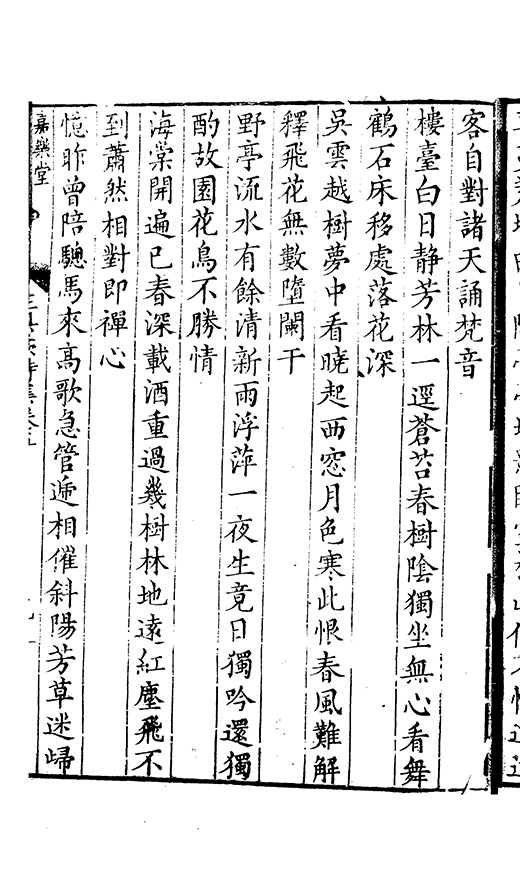 客自對諸天誦梵音
樓臺白日静芳林一逕蒼苔春樹陰獨坐無心看舞
鶴石床移處落花深
吳雲越樹夢中看曉起西窓月色寒此恨春風難解
釋飛花無數墮闌干
野亭流水有餘清新雨浮萍一夜生竟日獨吟還獨
酌故園花鳥不勝情
海棠開遍已春深載酒重過幾樹林地遠紅塵飛不
到蕭然相對即禪心
憶昨曾陪驄馬來高歌急管遞相催斜陽芳草迷歸
嘉樂堂